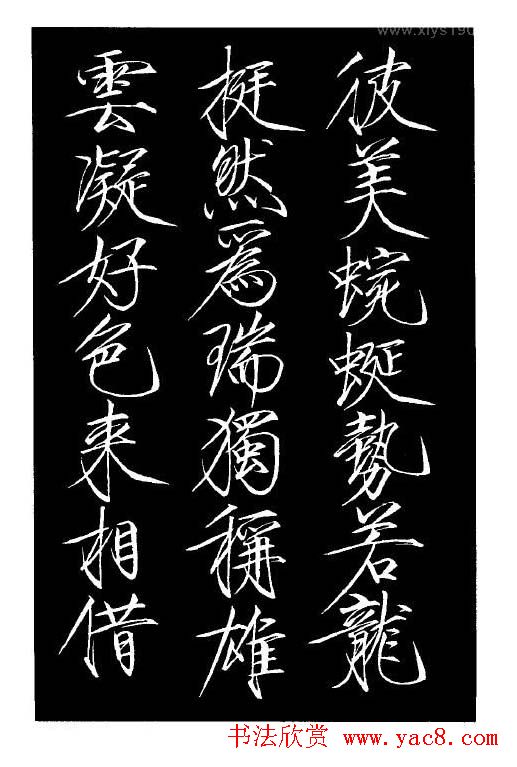 www.xlys190
彼美蜿蜒勢若龍
挺然為瑞獨稱雄
雲凝好色来相借
书法欣赏 www.yac8.com